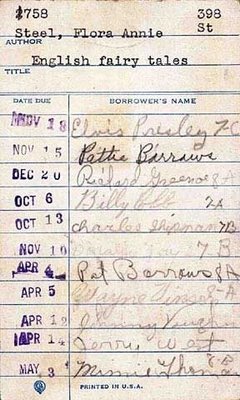 2758 398
Steel, Flora Annie St
AUTHOR
English fairy tales
TITLE
DATE DUE BORROWER'S NAME
NOV 18 Elvis Presley 7C
NOV 15 Pattie Barrows
DEC 20 Richard Greene 8A
OCT 6 Billy
OCT 13 Charles Shipman 7B
NOV 10 7B
APR 4 Pat Barrows 8A
APR 5 Wayne
APR 12
APR 14 Jerry West
MAY 3 Minnie 8B
PRINTED IN U.S.A.